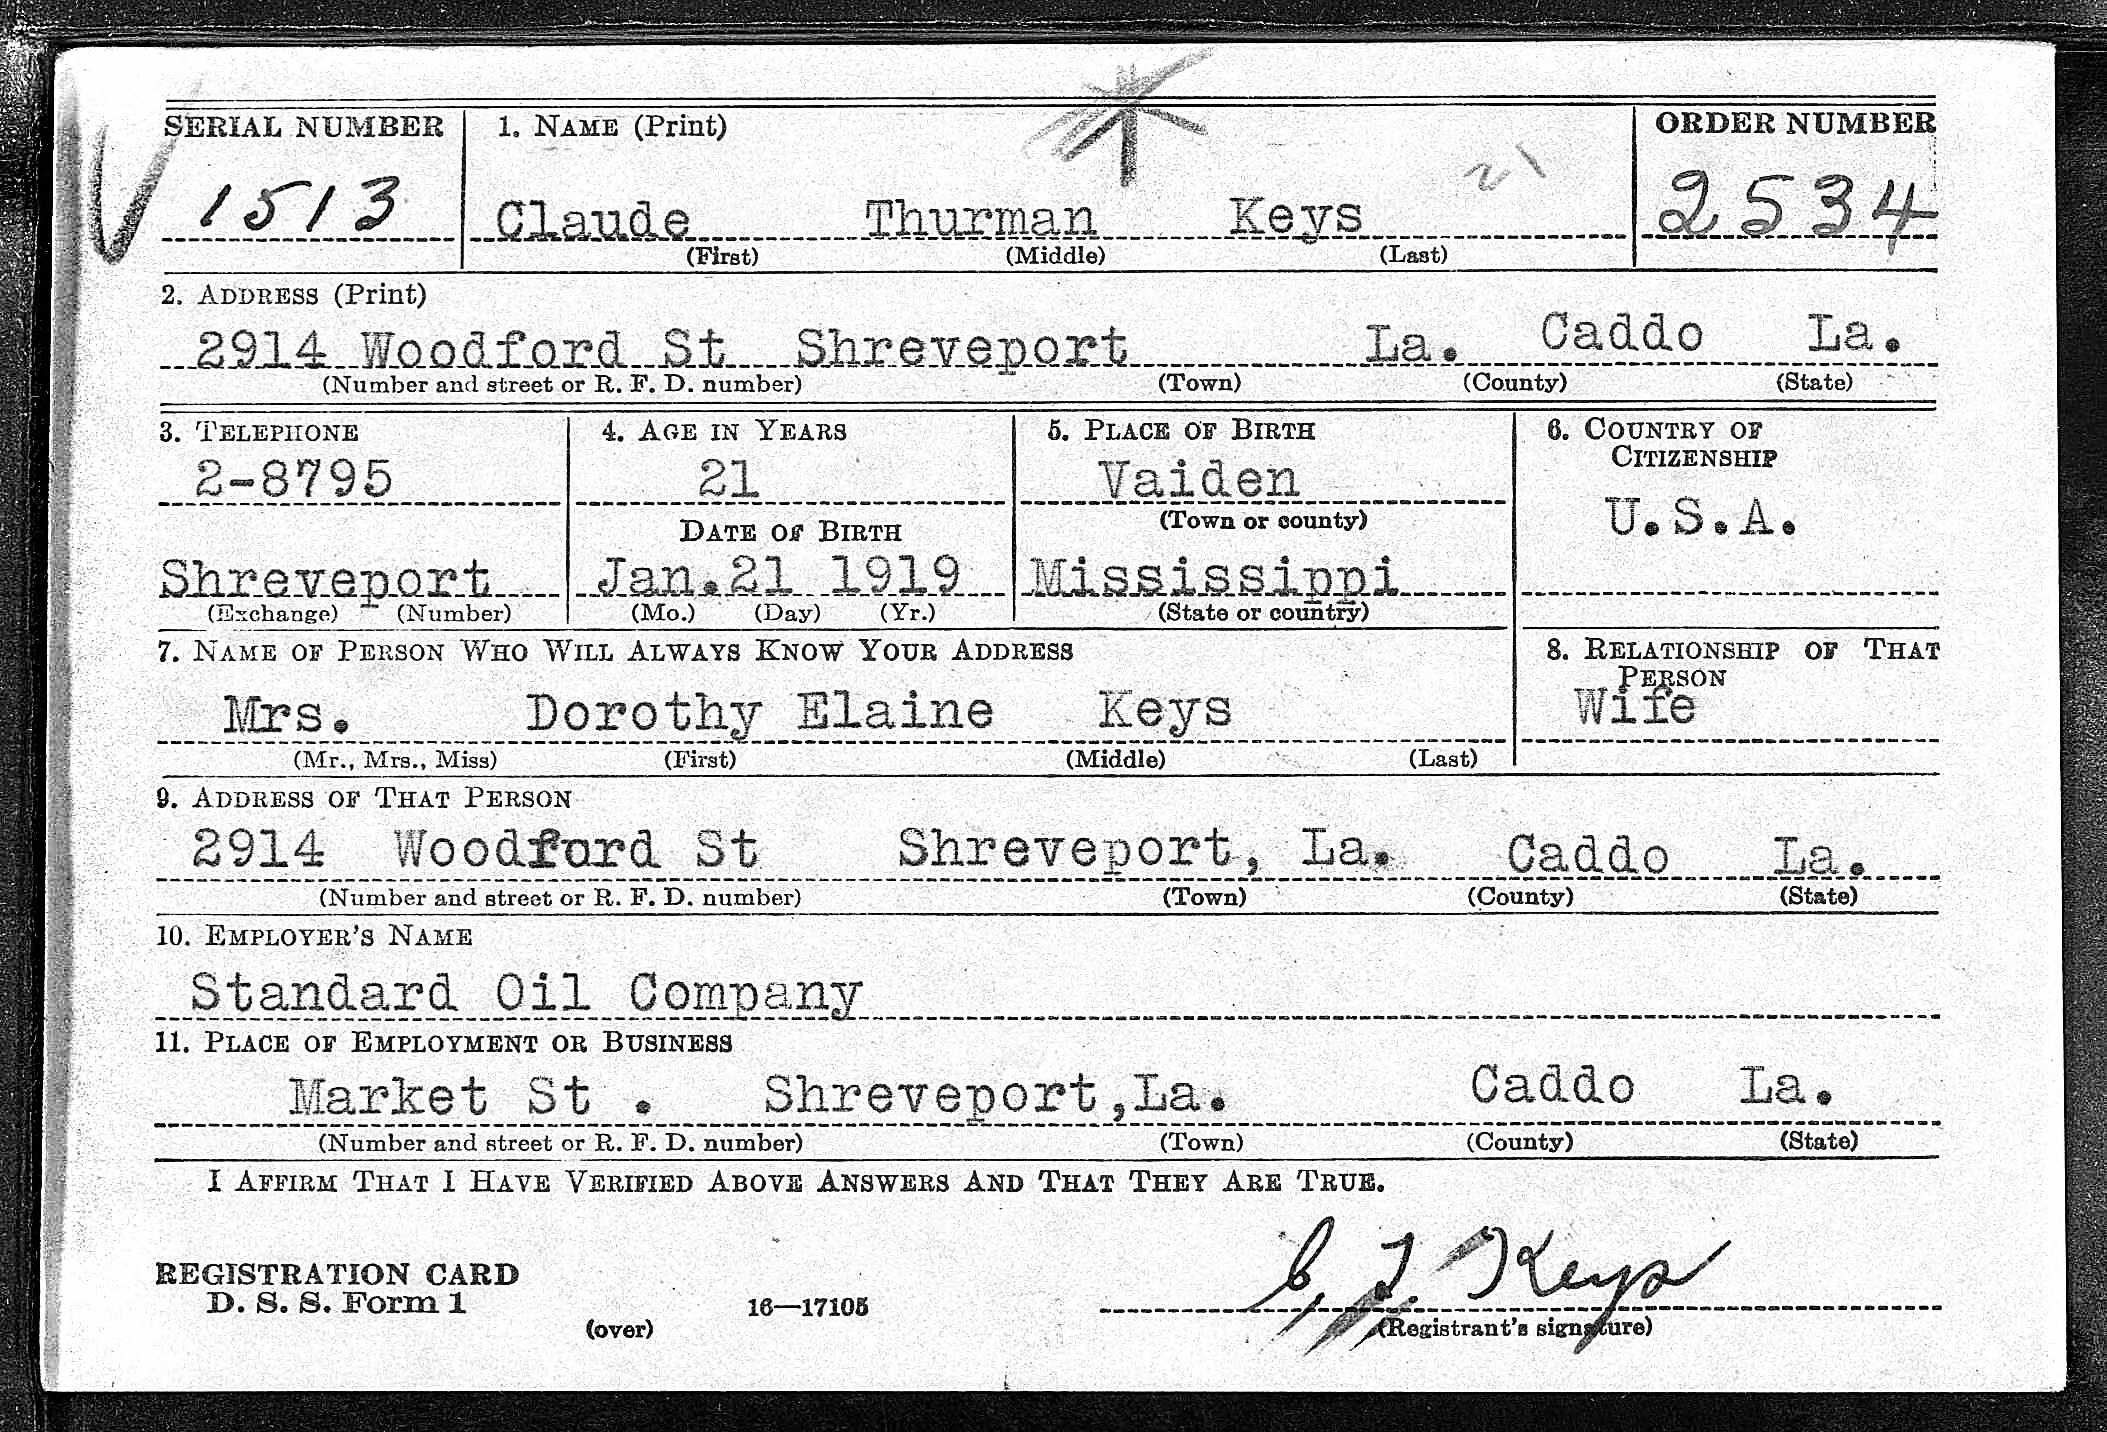 SERIAL NUMBER 1. NAME (Print) ORDER NUMBER
1513 Claude Thurman Keys 2534
(First) (Middle) (Last)
2. ADDRESS (Print)
2914 Woodford St Shreveport La. Caddo La.
(Number and street or R. F. D. number) (Town) (County) (State)
3. TELEPHONE 4. AGE IN YEARS 5. PLACE OF BIRTH 6. COUNTRY OF CITIZENSHIP
2-8795 21 Vaiden U.S.A.
DATE OF BIRTH (Town or county)
Shreveport Jan.21 1919 Mississippi
(Exchange) (Number) (Mo.) (Day) (Yr.) (State or country)
7. NAME OF PERSON WHO WILL ALWAYS KNOW YOUR ADDRESS 8. RELATIONSHIP OF THAT PERSON
Mrs. Dorothy Elaine Keys Wife
(Mr., Mrs., Miss) (First) (Middle) (Last)
9. ADDRESS OF THAT PERSON
2914 Woodford St Shreveport, La. Caddo La.
(Number and street or R. F. D. number) (Town) (County) (State)
10. EMPLOYER'S NAME
Standard Oil Company
11. PLACE OF EMPLOYMENT OR BUSINESS
Market St . Shreveport,La. Caddo La.
(Number and street or R. F. D. number) (Town) (County) (State)
I AFFIRM THAT I HAVE VERIFIED ABOVE ANSWERS AND THAT THEY ARE TRUE.
REGISTRATION CARD C. T. Keys
D. S. S. Form 1 16—17105
(over) (Registrant's signature)